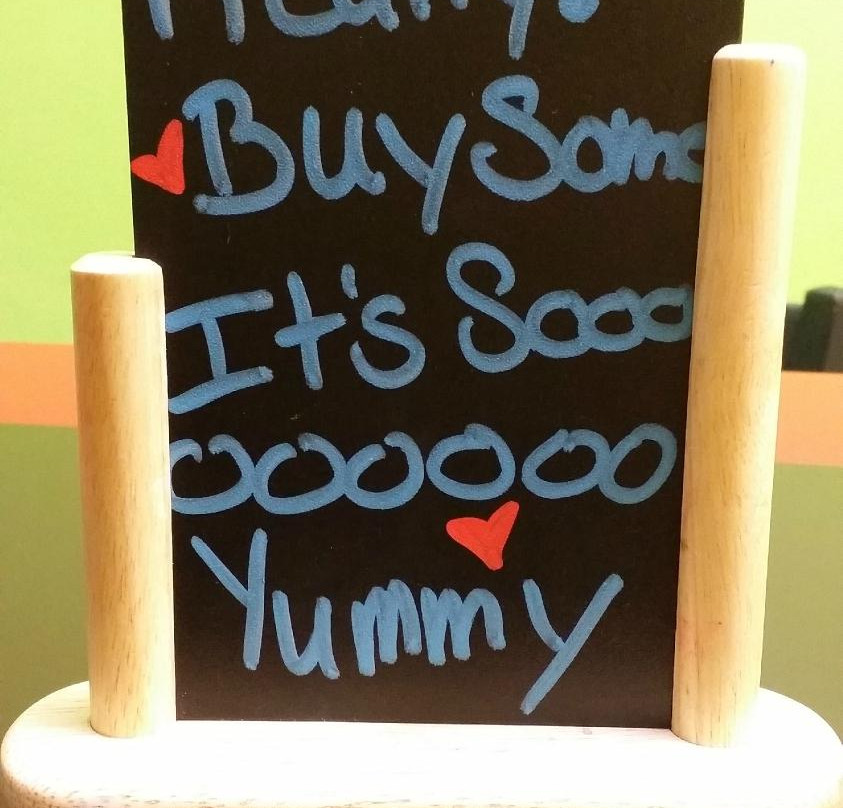 Buy Some
It's Sooo
oooooo
Yummy